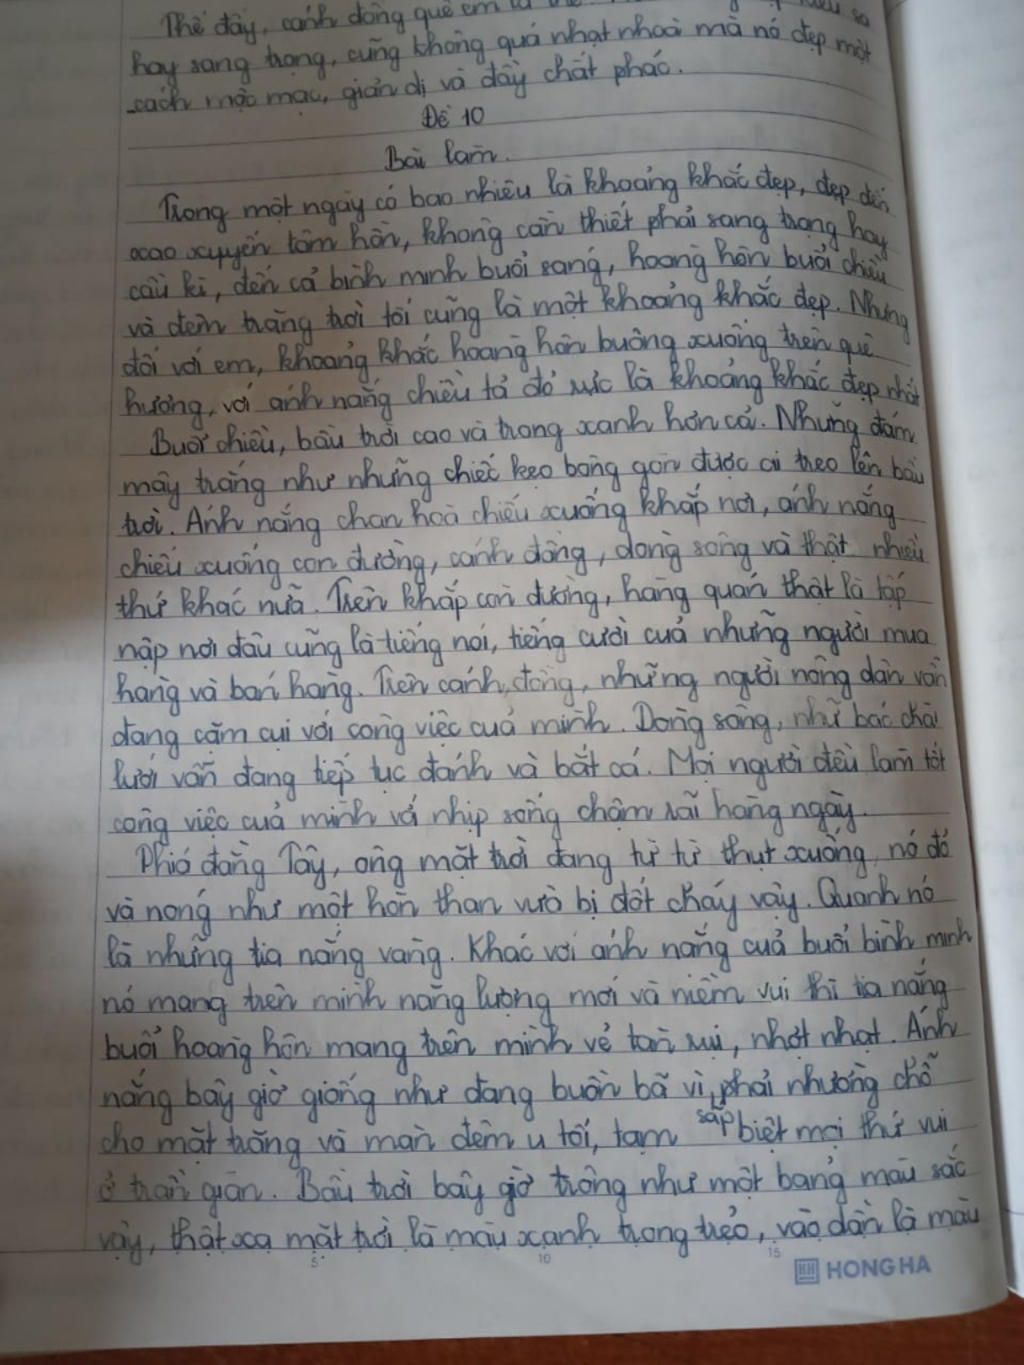 Thế đấy, cánh đồng quê em là
hay sang trọng, cũng không quá nhạt nhoà mà nó đẹp một
cách mộc mạc, giản dị và đầy chất phác.
Đề 10
Bài làm.
Trong một ngày có bao nhiêu là khoảng khắc đẹp, đẹp đến
xao xuyến tâm hồn, không cần thiết phải sang trọng hay
cầu kì, đến cả bình minh buổi sáng, hoàng hôn buổi chiều
và đêm trăng trời tối cũng là một khoảng khắc đẹp. Nhưng
đối với em, khoảng khắc hoàng hôn buông xuống trên quê
hương, với ánh nắng chiều tà đỏ rực là khoảng khắc đẹp nhất
Buổi chiều, bầu trời cao và trong xanh hơn cả. Những đám
mây trắng như những chiếc kẹo bông gòn được ai treo lên bầu
trời. Ánh nắng chan hoà chiếu xuống khắp nơi, ánh nắng
chiếu xuống con đường, cánh đồng, dòng sông và thật nhiều
thứ khác nữa. Trên khắp con đường, hàng quán thật là tấp
nập nơi đâu cũng là tiếng nói, tiếng cười của những người mua
hàng và bán hàng. Trên cánh đồng, những người nông dân vẫn
đang cặm cụi với công việc của mình. Dòng sông, như bác chài
lưới vẫn đang tiếp tục đánh và bắt cá. Mọi người đều làm tốt
công việc của mình với nhịp sống chậm rãi hàng ngày.
Phía đằng Tây, ông mặt trời đang từ từ thụt xuống, nó đỏ
và nóng như một hòn than vừa bị đốt cháy vậy. Quanh nó
là những tia nắng vàng. Khác với ánh nắng của buổi bình minh
nó mang trên mình năng lượng mới và niềm vui thì tia nắng
buổi hoàng hôn mang trên mình vẻ tàn rụi, nhợt nhạt. Ánh
nắng bây giờ giống như đang buồn bã vì phải nhường chỗ
cho mặt trăng và màn đêm u tối, tạm sắp biệt mọi thứ vui
ở trần gian. Bầu trời bây giờ trông như một bảng màu sắc
vậy, thật xa mặt trời là màu xanh trong trẻo, vào dần là màu
5 10 15
HONG HA